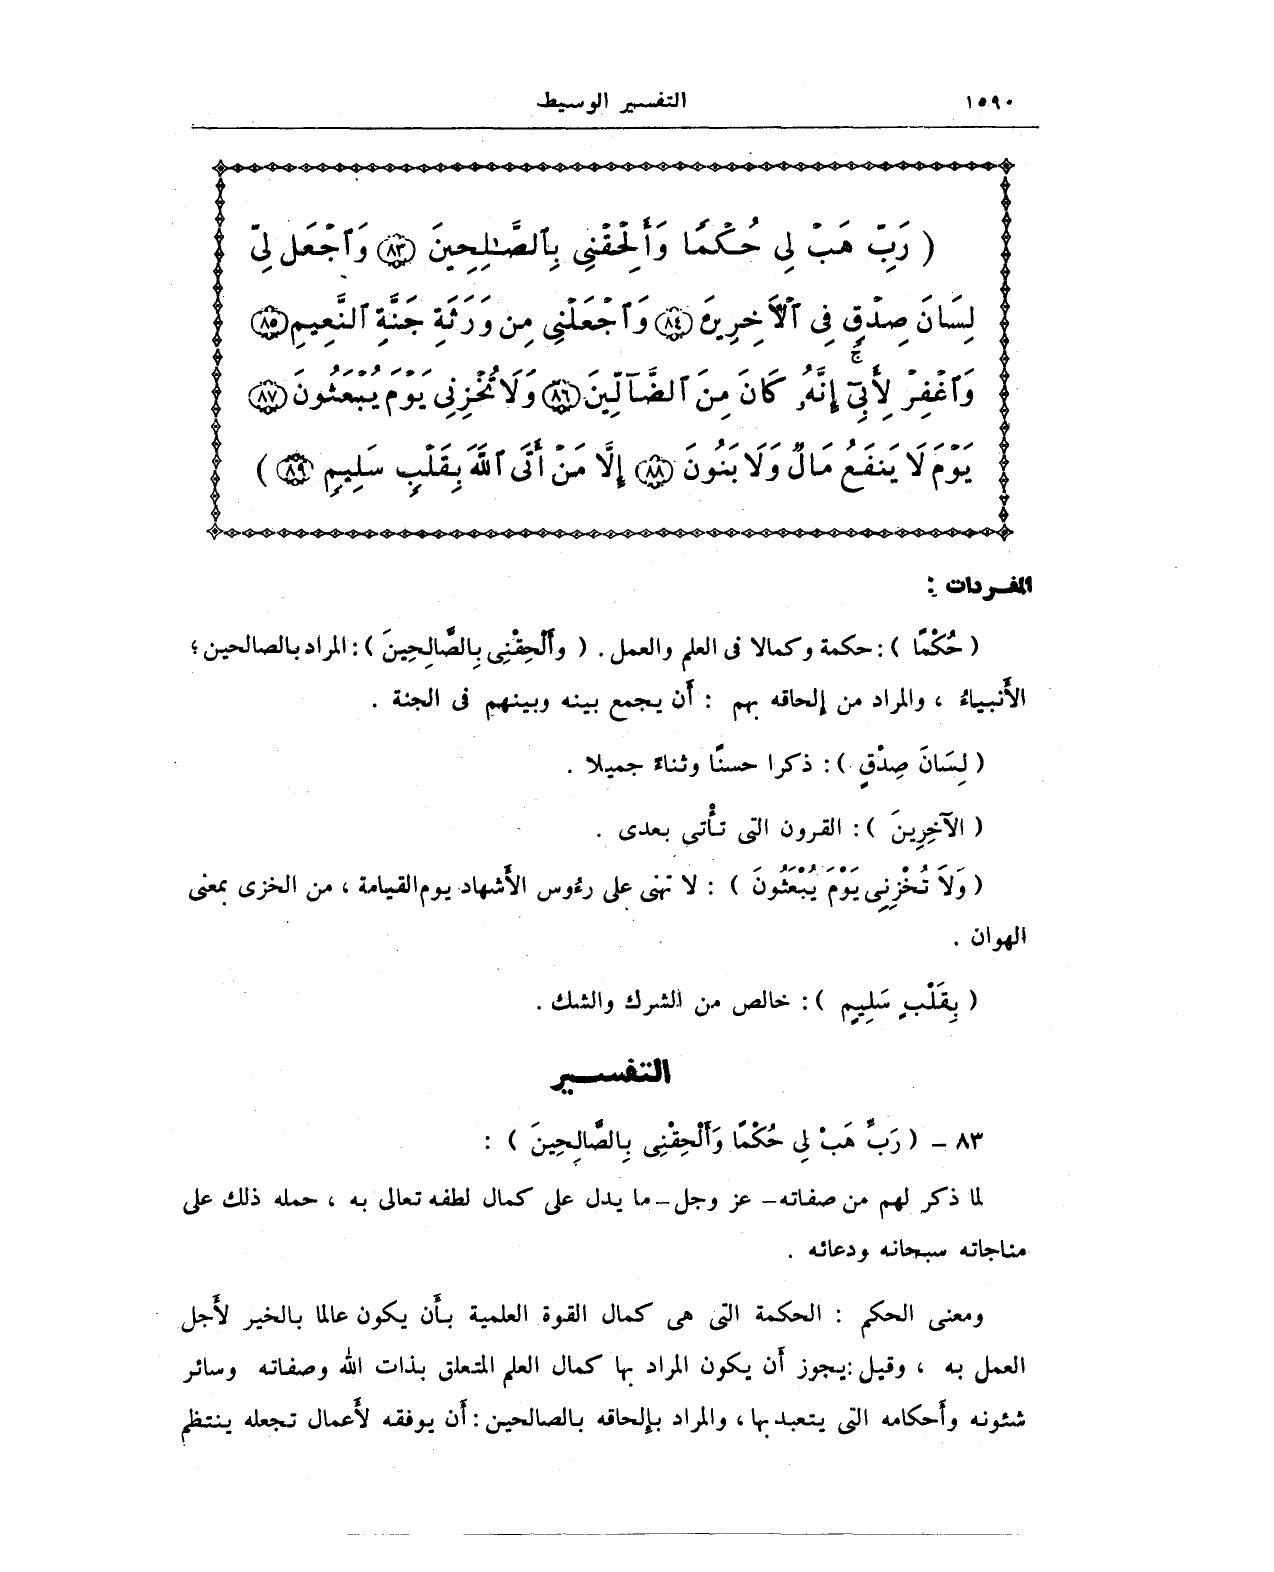 ١٥٩٠ التفسير الوسيط
( رَبِّ هَبْ لِي حُكْمًا وَأَلْحِقْنِي بِٱلصَّـٰلِحِينَ ﴿٨٣﴾ وَٱجْعَل لِّي
لِسَانَ صِدْقٍ فِي ٱلْأَخِرِينَ ﴿٨٤﴾ وَٱجْعَلْنِي مِن وَرَثَةِ جَنَّةِ ٱلنَّعِيمِ ﴿٨٥﴾
وَٱغْفِرْ لِأَبِيٓ ۚ إِنَّهُۥ كَانَ مِنَ ٱلضَّآلِّينَ ﴿٨٦﴾ وَلَا تُخْزِنِي يَوْمَ يُبْعَثُونَ ﴿٨٧﴾
يَوْمَ لَا يَنفَعُ مَالٌ وَلَا بَنُونَ ﴿٨٨﴾ إِلَّا مَنْ أَتَى ٱللَّهَ بِقَلْبٍ سَلِيمٍ ﴿٨٩﴾ )
المفـردات :
( حُكْمًا ) : حكمة وكمالا فى العلم والعمل . ( وأَلْحِقْنِى بِالصَّالِحِينَ ) : المراد بالصالحين ؛
الأَنبياءُ ، والمراد من إلحاقه بهم : أَن يجمع بينه وبينهم فى الجنة .
( لِسَانَ صِدْقٍ ) : ذكرا حسنًا وثناءً جميلا .
( الآخِرِينَ ) : القرون التى تأْتى بعدى .
( وَلاَ تُخْزِنِى يَوْمَ يُبْعَثُونَ ) : لا تهنى على رءُوس الأَشهاد يوم القيامة ، من الخزى بمعنى
الهوان .
( بِقَلْبٍ سَلِيمٍ ) : خالص من الشرك والشك .
التفســير
٨٣ – ( رَبِّ هَبْ لِى حُكْمًا وَأَلْحِقْنِى بِالصَّالِحِينَ ) :
لما ذكر لهم من صفاته – عز وجل – ما يدل على كمال لطفه تعالى به ، حمله ذلك على
مناجاته سبحانه ودعائه .
ومعنى الحكم : الحكمة التى هى كمال القوة العلمية بأَن يكون عالما بالخير لأَجل
العمل به ، وقيل : يجوز أَن يكون المراد بها كمال العلم المتعلق بذات الله وصفاته وسائر
شئونه وأَحكامه التى يتعبد بها ، والمراد بإلحاقه بالصالحين : أَن يوفقه لأَعمال تجعله ينتظم